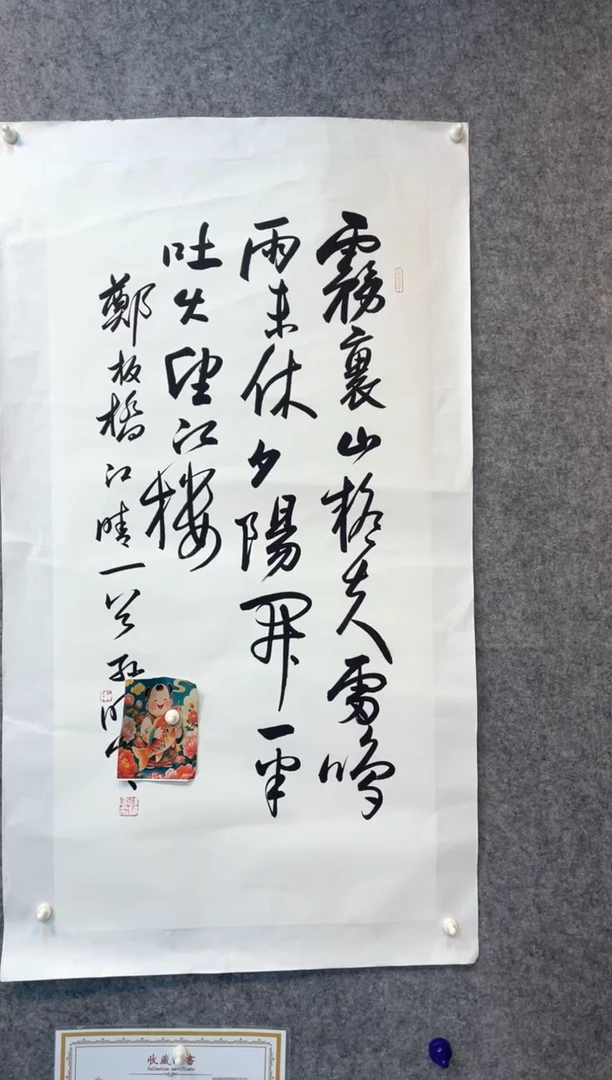 霧裹山疑失雷鳴
雨未休夕陽開一半
吐出望江樓
鄭板橋江晴一首
收藏書
Collection certificate